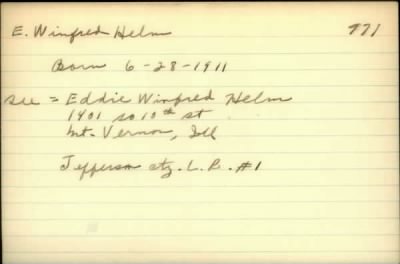 E. Winfred Helm 971
Born 6-28-1911
see = Eddie Winfred Helm
1401 So 10th st
Mt. Vernon, Ill
Jefferson cty. L. B. #1